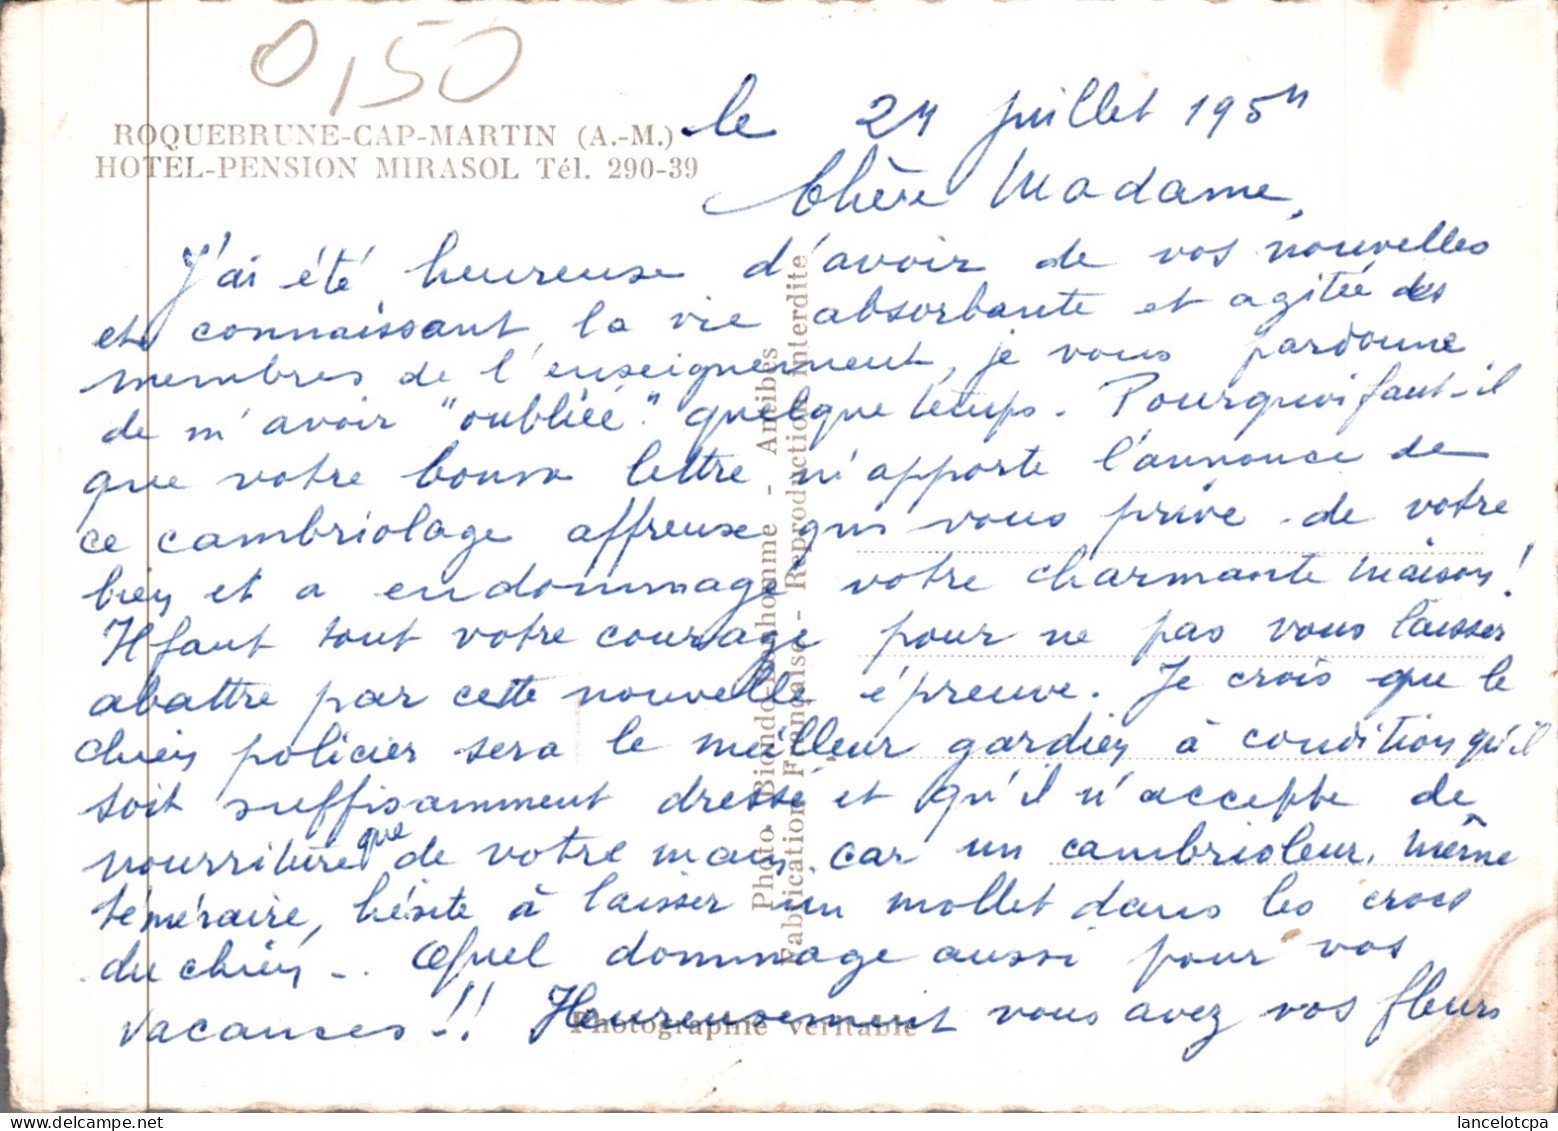 0,50
ROQUEBRUNE-CAP-MARTIN (A.-M.)
HOTEL-PENSION MIRASOL Tél. 290-39
le 24 juillet 1954
Chère Madame,
J'ai été heureuse d'avoir de vos nouvelles
et connaissant la vie absorbante et agitée des
membres de l'enseignement, je vous pardonne
de m'avoir "oubliée" quelque temps. Pourquoi faut-il
que votre bonne lettre m'apporte l'annonce de
ce cambriolage affreux qui vous prive de votre
bien et a endommagé votre charmante maison !
Il faut tout votre courage pour ne pas vous laisser
abattre par cette nouvelle épreuve. Je crois que le
chien policier sera le meilleur gardien à condition qu'il
soit suffisamment dressé et qu'il n'accepte de
nourriture que de votre main car un cambrioleur, même
téméraire, hésite à laisser un mollet dans les crocs
du chien -. Quel dommage aussi pour vos
vacances !! Heureusement vous avez vos fleurs
Photo Biondo-Bonhomme - Antibes
Fabrication Française - Reproduction interdite
Photographie véritable
lancelotcpa